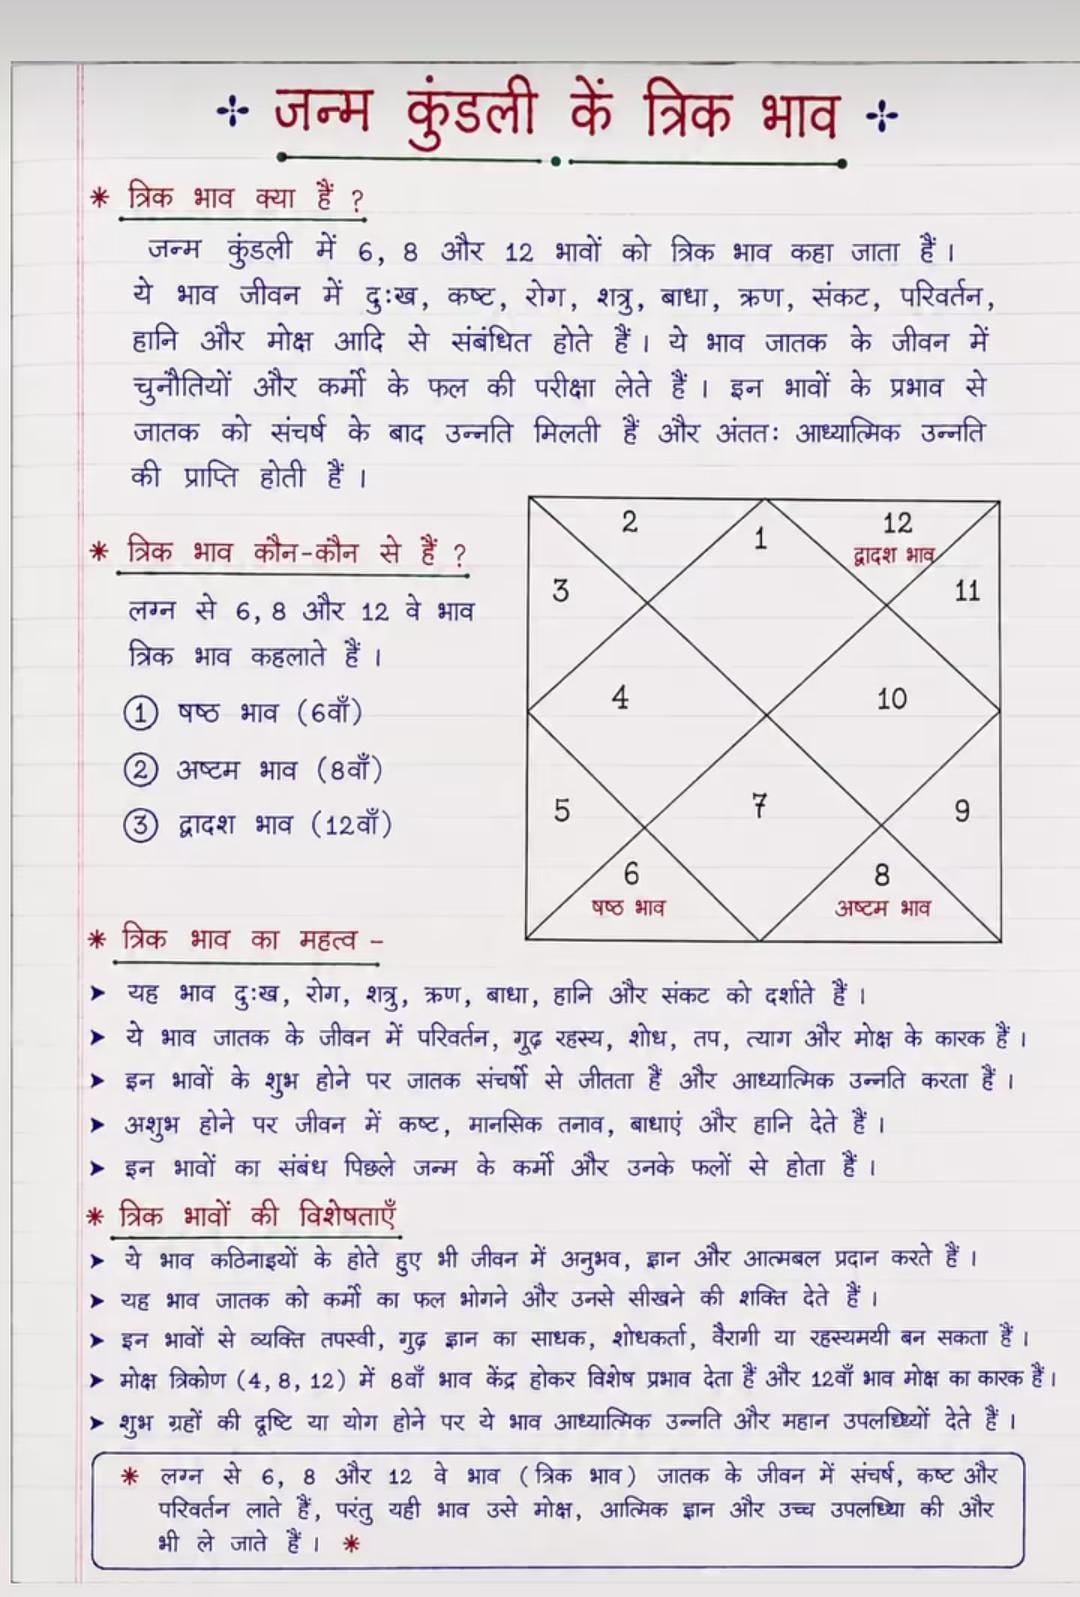 जन्म कुंडली कें त्रिक भाव
* त्रिक भाव क्या हैं ?
जन्म कुंडली में 6, 8 और 12 भावों को त्रिक भाव कहा जाता हैं।
ये भाव जीवन में दुःख, कष्ट, रोग, शत्रु, बाधा, क्रण, संकट, परिवर्तन,
हानि और मोक्ष आदि से संबंधित होते हैं। ये भाव जातक के जीवन में
चुनौतियों और कर्मो के फल की परीक्षा लेते हैं। इन भावों के प्रभाव से
जातक को संचर्ष के बाद उन्नति मिलती हैं और अंततः आध्यात्मिक उन्नति
की प्राप्ति होती हैं।
* त्रिक भाव कौन-कौन से हैं ?
लग्न से 6, 8 और 12 वे भाव
त्रिक भाव कहलाते हैं।
① षष्ठ भाव (6वाँ)
② अष्टम भाव (8वाँ)
③ द्वादश भाव (12वाँ)
2
1
12
द्वादश भाव
3
11
4
10
5
7
9
6
षष्ठ भाव
8
अष्टम भाव
* त्रिक भाव का महत्व -
➤ यह भाव दुःख, रोग, शत्रु, क्रण, बाधा, हानि और संकट को दर्शाते हैं।
➤ ये भाव जातक के जीवन में परिवर्तन, गूढ़ रहस्य, शोध, तप, त्याग और मोक्ष के कारक हैं।
➤ इन भावों के शुभ होने पर जातक संचर्षो से जीतता हैं और आध्यात्मिक उन्नति करता हैं।
➤ अशुभ होने पर जीवन में कष्ट, मानसिक तनाव, बाधाएं और हानि देते हैं।
➤ इन भावों का संबंध पिछले जन्म के कर्मो और उनके फलों से होता हैं।
* त्रिक भावों की विशेषताएँ
➤ ये भाव कठिनाइयों के होते हुए भी जीवन में अनुभव, ज्ञान और आत्मबल प्रदान करते हैं।
➤ यह भाव जातक को कर्मो का फल भोगने और उनसे सीखने की शक्ति देते हैं।
➤ इन भावों से व्यक्ति तपस्वी, गुढ़ ज्ञान का साधक, शोधकर्ता, वैरागी या रहस्यमयी बन सकता हैं।
➤ मोक्ष त्रिकोण (4, 8, 12) में 8वाँ भाव केंद्र होकर विशेष प्रभाव देता हैं और 12वाँ भाव मोक्ष का कारक हैं।
➤ शुभ ग्रहों की दृष्टि या योग होने पर ये भाव आध्यात्मिक उन्नति और महान देते हैं।
* लग्न से 6, 8 और 12 वे भाव (त्रिक भाव) जातक के जीवन में संचर्ष, कष्ट और
परिवर्तन लाते हैं, परंतु यही भाव उसे मोक्ष, आत्मिक ज्ञान और उच्च की और
भी ले जाते हैं। *